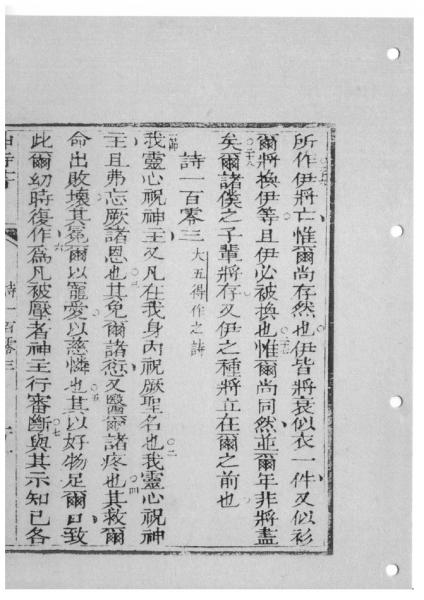 所作伊將亡惟爾尚存然也伊皆將衰似衣一件又似衫
爾將換伊等且伊必被換也惟爾尚同然並爾年非將盡
矣爾諸僕之子輩將存又伊之種將立在爾之前也
詩一百零三 大五得作之詩
我靈心祝神主又凡在我身內祝厥聖名也我靈心祝神
主且弗忘厥諸恩也其免爾諸愆又醫爾諸疼也其救爾
命出敗壞其冕爾以寵愛以慈憐也其以好物足爾口致
此爾幼時復作為凡被壓者神主行審斷與其示知己各
詩一百零三